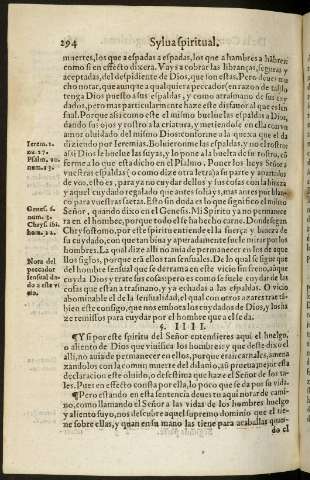 294 Sylua spiritual.
muertes, los que a espadas a espadas, los que a hambres a hābres:
como si en effecto dixera. Vays a cobrar las libranças, seguras y
aceptadas, del despidiente de Dios, que son estas. Pero deues mu
cho notar, que aunque a qualquiera peccador (en razon de tal) lo
tenga Dios puesto a sus espaldas, y como a trasmano de sus cuy
dados, pero mas particularmente haze este disfauor al que es sen
sual. Porque assi como este el mismo buelue las espaldas a Dios,
dando sus ojos y rostro a la criatura, y metiendole en ella con vn
amor oluidado del mismo Dios: conforme a la quexa que el da
Ierem. 2. diziendo por Ieremias. Boluieronme las espaldas, y no el rostro:
nu. 27. assi Dios le buelue las suyas, y lo pone a la buelta de su rostro, cō
Psalm. 20. forme a lo que esta dicho en el Psalmo. Poner los heys Señor a
num. 13. vuestras espaldas (o como dize otra letra) a su parte y apartados
de vos, esto es, para ya no cuydar dellos y sus cosas con la blanca
y aquel cuydado regalado que antes soliays, mas antes por blan-
co para vuestras saetas. Esto sin duda es lo que significo el mismo
Genes. 6. Señor, quando dixo en el Genesis. Mi Spiritu ya no permane-
num. 3. ra en el hombre, porque todo el se ha hecho carne. Donde segun
Chrys. ibi Chrysostomo, por este spiritu entiende el la fuerça y huerza de
hom. 22. su cuydado, con que tan bōna y apuradamente suele mirar por los
hombres. La qual dize alli no auia de permanecer en los de aque
llos siglos, porque erā ellos tan sensuales. De lo qual se sigue que
Nota del del hombre sensual que se derrama en este vicio sin freno, aūque
peccador cuyda Dios y trate sus cosas: pero es como se suele cuydar de las
sensual da cosas que estan a trasmano, y ya echadas a las espaldas. O vicio
do a este vi abominable el de la sensualidad, el qual con otros azares trae tā-
cio. bien este consigo, que nos embota los cuydados de Dios, y los ha
ze remissos para cuydar por el hombre que a el se da.
§. IIII.
¶ Y si por este spiritu del Señor entendiesses aqui el huelgo,
o aliento de Dios que viuifica los hombres: y que deste dixo el
alli, no auia de permanecer en ellos, porque eran carnales, amena
zandolos con la comun muerte del diluuio, assi prouea mejor esta
declaracion este olvido, o desestima que haze el Señor de los ta-
les. Pues en effecto consta por ella, lo poco que se da por su vida.
¶ Pero estando en esta sentencia deues tu aqui notar de cami-
no, como llamando el Señor a las vidas de los hombres huelgo
y aliento suyo, nos descubre aquel supremo dominio que el tie-
ne sobre ellas, y quan en su mano las tiene para acaballas quan-
do el